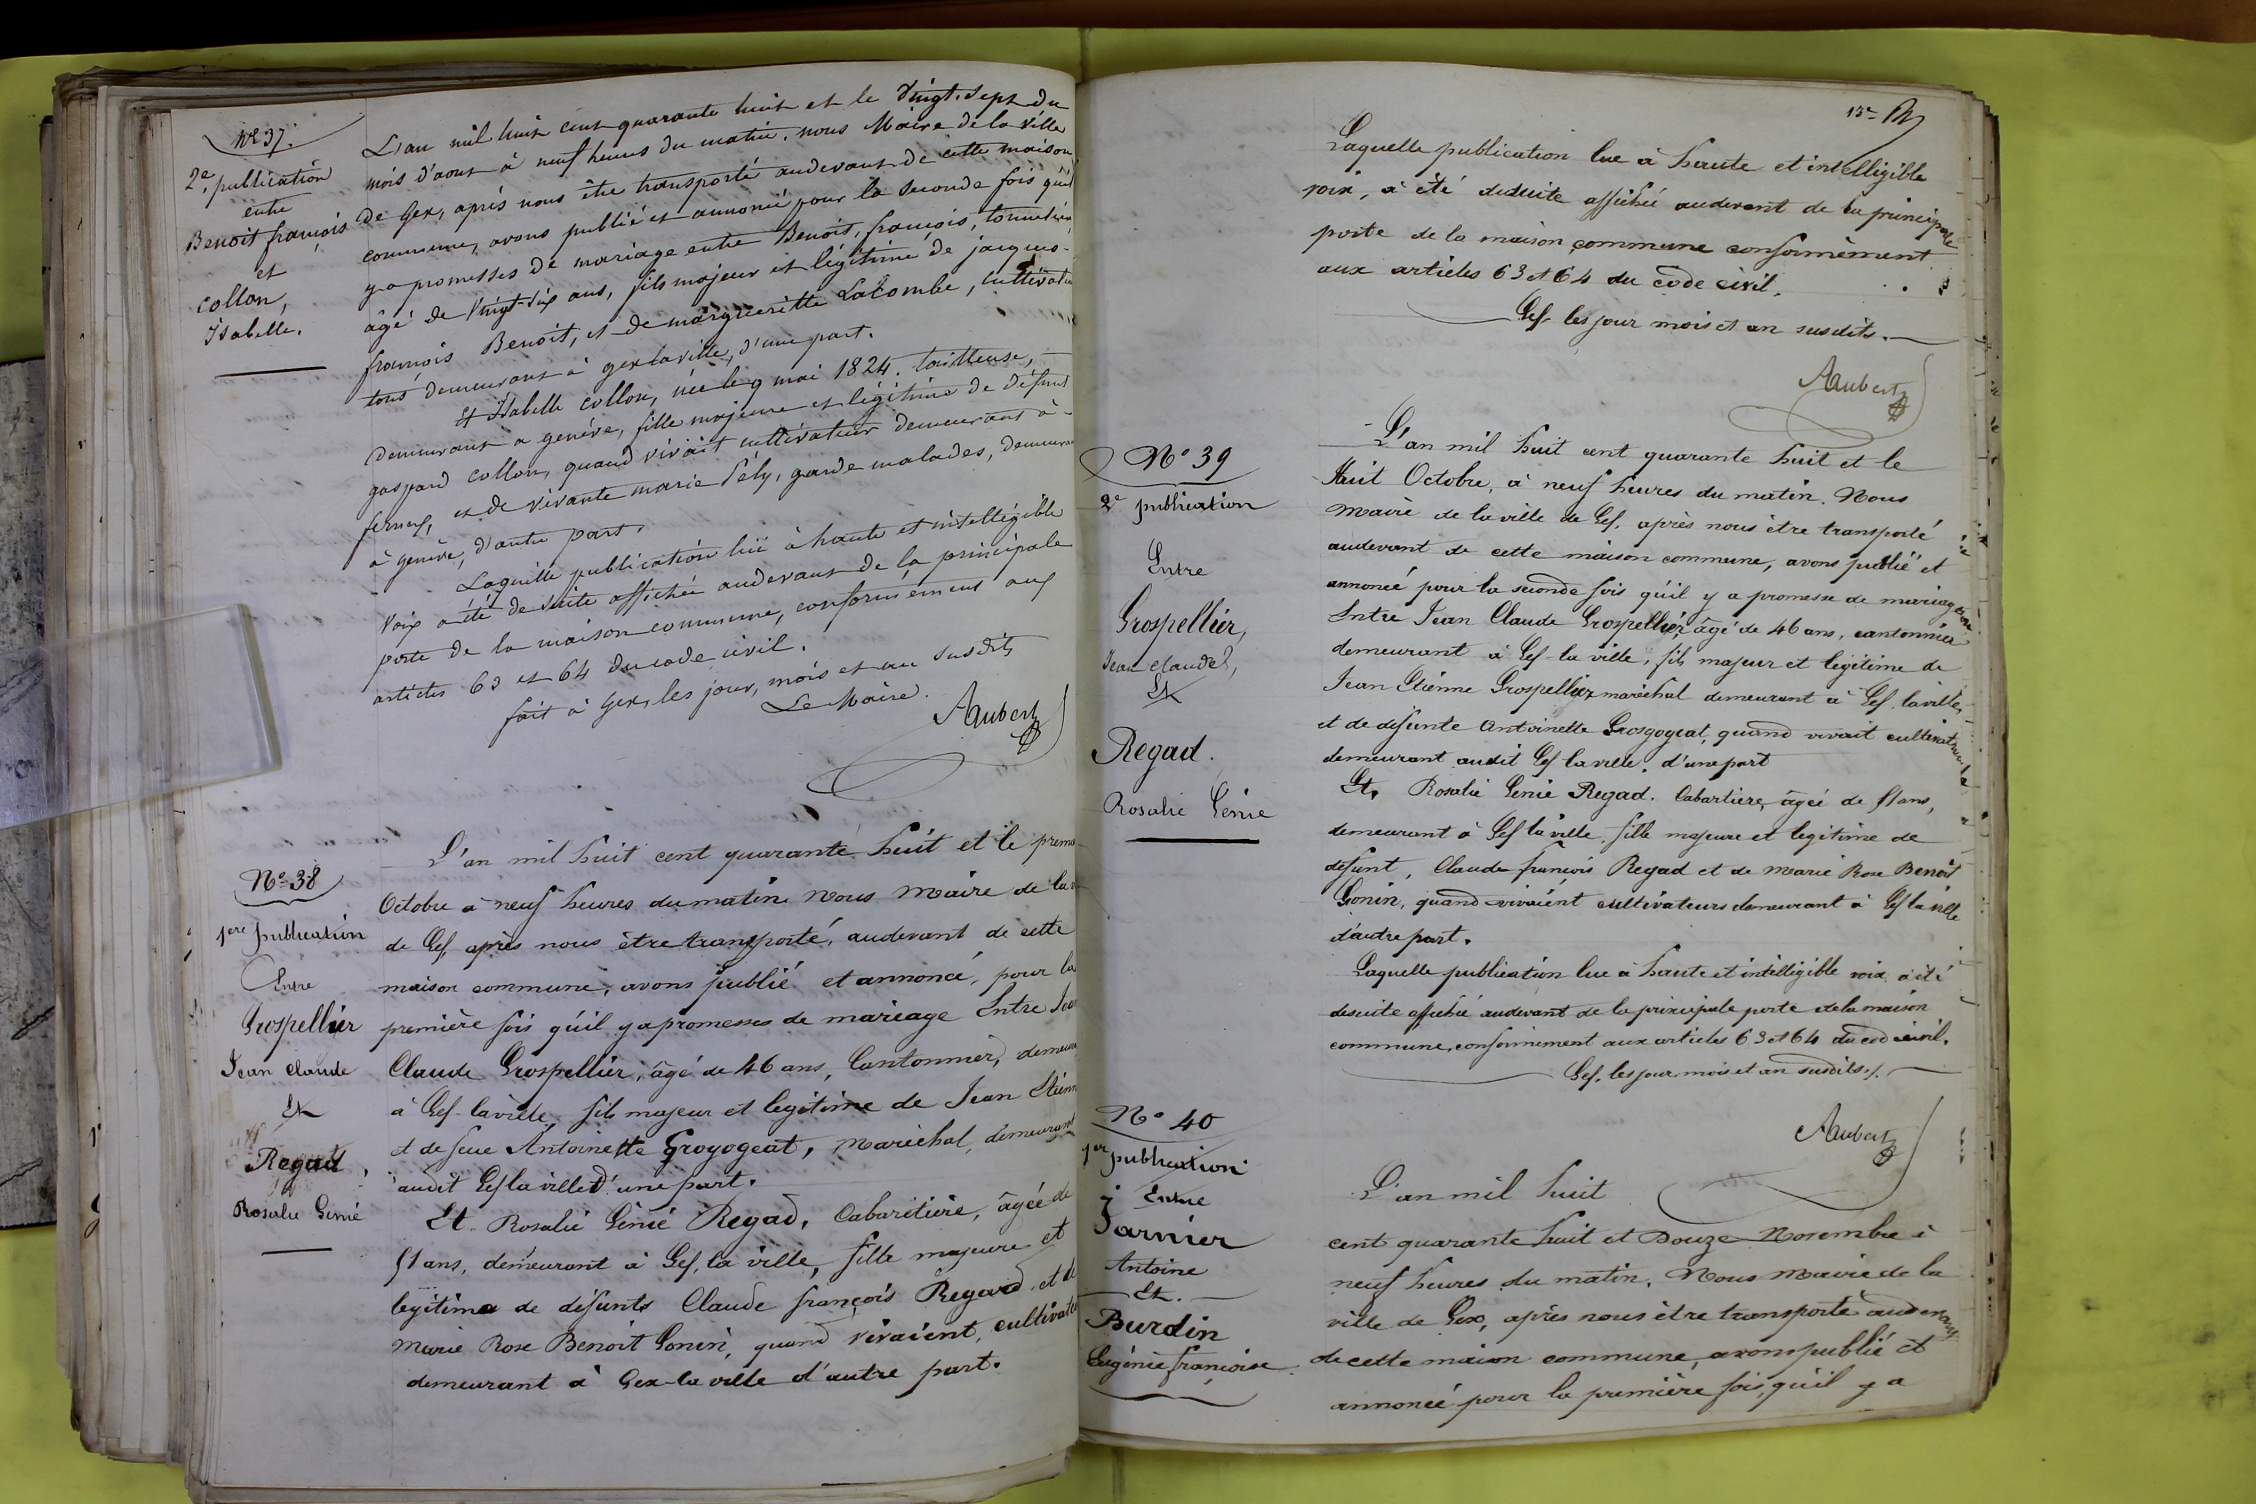 N° 37.
2e. publication
entre
Benoit françois
et
collon,
Isabelle.
L'an mil huit cent quarante huit et le Vingt-Sept du
mois d'aout à neuf heures du matin, nous Maire de la Ville
de Gex, après nous être transporté audevant de cette maison
commune, avons publié et annoncé pour la Seconde fois qu'il
y a promesses de mariage entre Benoit, françois,
âgé de Vingt-Six ans, fils majeur et légitime de jacques-
françois Benoit, et de margueritte Lacombe,
tous demeurant à gex la ville, d'une part.
Et Isabelle collon, née le 9 mai 1824. tailleuse,
demeurant a genève, fille majeure et légitime de défunt
gaspard collon, quand vivait cultivateur demeurant à
ferney, et de vivante marie Pély, garde malades,
à genève, d'autre part.
Laquelle publication lue à haute et intelligible
Voix a été de suite affichée audevant de la principale
porte de la maison commune, conformément aux
articles 63 et 64 du code civil.
fait à Gex, les jour, mois et an susdits
Le Maire.
Aubert
N° 38
1ere publication
Entre
Grospellier
Jean claude
Et
Regad,
Rosalie Génie
L'an mil huit cent quarante huit et le
Octobre à neuf heures du matin Nous Maire de la
de Gex, après nous être transporté, audevant de cette
maison commune, avons publié et annoncé, pour la
première fois qu'il y a promesses de mariage Entre Jean
Claude Grospellier, âgé de 46 ans, Cantonnier,
à Gex-la ville, fils majeur et legitime de Jean Etienne
et de feue Antoinette Groyogeat, Maréchal, demeurant
audit Gex la ville d'une part.
Et Rosalie Génie Regad, Cabaretière, âgée de
51 ans, demeurant à Gex, la ville, fille majeure et
legitime de défunts Claude françois Regard et de
Marie Rose Benoit Gonin, quand vivaient,
demeurant à Gex-la ville d'autre part.
Laquelle publication lue à haute et intelligible
voix, a été desuite affichée audevant de la principale
porte de la maison commune conformément
aux articles 63 et 64 du code civil.
Gex les jour mois et an susdits.
Aubert
N° 39
2e publication
Entre
Grospellier,
Jean claude,
Et
Regad.
Rosalie Génie
L'an mil huit cent quarante huit et le
Huit Octobre, à neuf heures du matin. Nous
Maire de la ville de Gex, après nous être transporté
audevant de cette maison commune, avons publié et
annoncé pour la seconde fois qu'il y a promesse de mariage
Entre Jean Claude Grospellier, âgé de 46 ans, cantonnier
demeurant à Gex-la ville, fils majeur et légitime de
Jean Etienne Grospellier maréchal demeurant à Gex la ville,
et de défunte Antoinette Grosgogeat, quand vivait
demeurant audit Gex la ville. d'une part
Et, Rosalie Génie Regad. Cabartiere, âgée de 51 ans,
demeurant à Gex la ville, fille majeure et legitime de
défunt, Claude françois Regad et de Marie Rose Benoit
Gonin, quand vivaient cultivateurs demeurant à Gex la ville
d'autre part.
Laquelle publication lue à haute et intelligible voix a été
desuite affichée audevant de la principale porte de la maison
commune, conformément aux articles 63 et 64 du code civil.
Gex, les jour mois et an susdits.
Aubert
N° 40
1ere publication
Entre
Jarnier
Antoine
Et.
Burdin
Eugénie françoise
L'an mil huit
cent quarante huit et Douze Novembre à
neuf heures du matin, Nous Maire de la
ville de Gex, après nous être transporté audevant
de cette maison commune, avons publié et
annoncé pour la première fois, qu'il y a